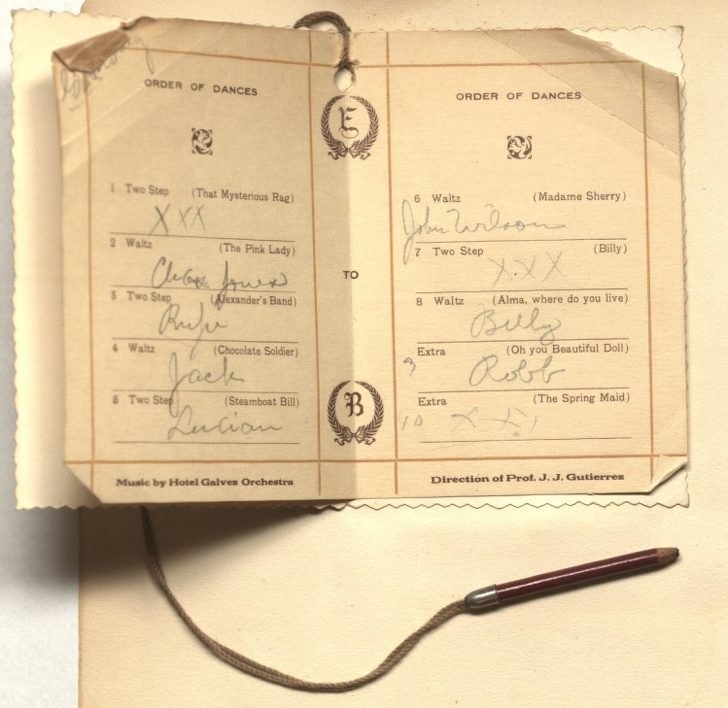 ORDER OF DANCES
1 Two Step (That Mysterious Rag)
XXX
2 Waltz (The Pink Lady)
Chas Jones
3 Two Step (Alexander's Band)
Rufe
4 Waltz (Chocolate Soldier)
Jack
5 Two Step (Steamboat Bill)
Lucian
Music by Hotel Galvez Orchestra
E
TO
B
ORDER OF DANCES
6 Waltz (Madame Sherry)
John Wilson
7 Two Step (Billy)
X.XX
8 Waltz (Alma, where do you live)
Billy
9 Extra (Oh you Beautiful Doll)
Robb
Extra (The Spring Maid)
10 X X
Direction of Prof. J. J. Gutierrez